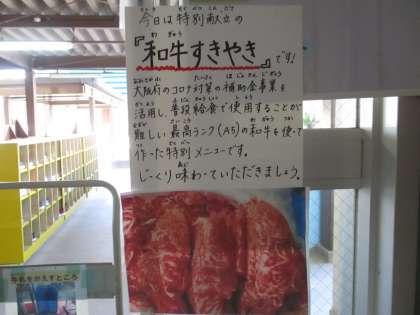 今日は特別献立の
『和牛すきやき』です!
大阪府のコロナ対策の補助金事業を
活用し、普段給食で使用することが
難しい最高ランク(A5)の和牛を使って
作った特別メニューです。
じっくり味わっていただきましょう。
牛乳をかえすところ